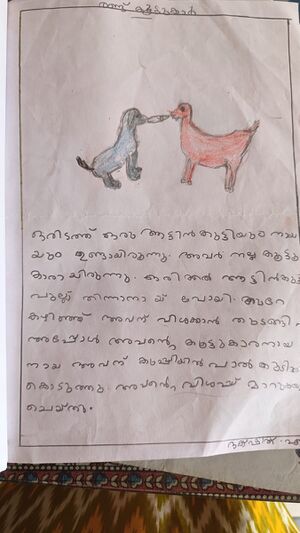 രണ്ട് കൂട്ടുകാർ
ഒരിടത്ത് ഒരു ആട്ടിൻകുട്ടിയും നായ
യും ഉണ്ടായിരുന്നു. അവർ നല്ല കൂട്ടു
കാരായിരുന്നു. ഒരിക്കൽ ആട്ടിൻകു
പുല്ല് തിന്നാനായ് പോയി. കുറേ
കഴിഞ്ഞ് അവന് വിശക്കാൻ തുടങ്ങി.
അപ്പോൾ അവന്റെ കൂട്ടുകാരനായ
നായ അവന് കുപ്പിയിൽ പാൽ കുടിയ
കൊടുത്തു. അവന്റെ വിശപ്പ് മാറുക
ചെയ്തു.